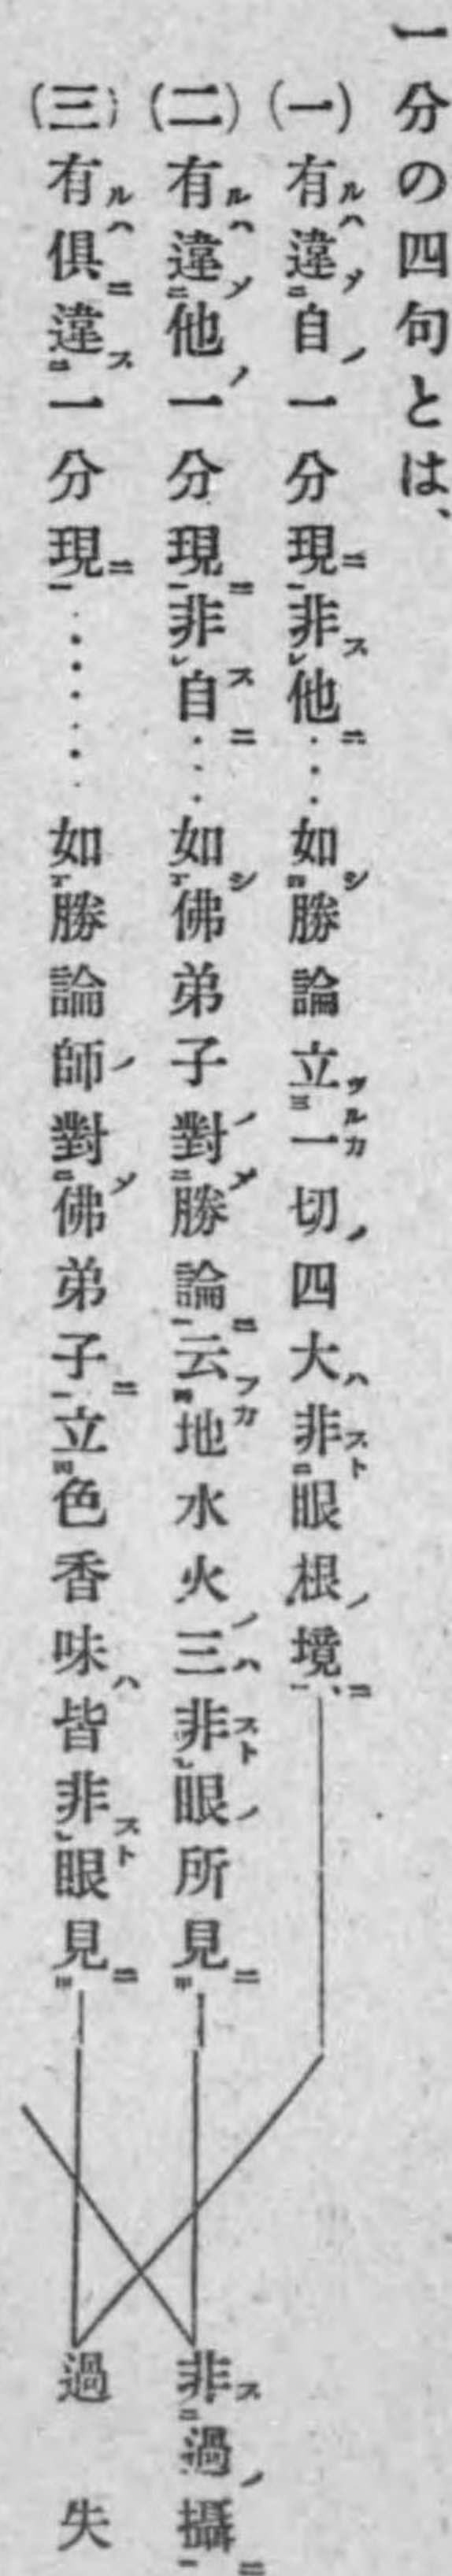 一分の四句とは、
(一)有違自一分現非他‥‥如勝論立一切四大非眼根境
(二)有違他一分現非自‥‥如佛弟子對勝論云地水火三非眼所見
(三)有倶違一分現‥‥‥如勝論師對佛弟子立色香味皆非眼見
非過攝
過失